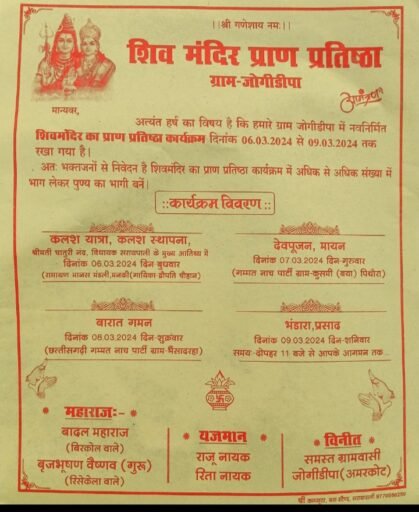 ।।श्री गणेशाय नमः।।
शिव मंदिर प्राण प्रतिष्ठा
ग्राम-जोगीडीपा
आमंत्रण
मान्यवर,
अत्यंत हर्ष का विषय है कि हमारे ग्राम जोगीडीपा में नवनिर्मित
शिवमंदिर का प्राण प्रतिष्ठा कार्यक्रम दिनांक 06.03.2024 से 09.03.2024 तक
रखा गया है।
अतः भक्तजनों से निवेदन है शिवमंदिर का प्राण प्रतिष्ठा कार्यक्रम में अधिक से अधिक संख्या में
भाग लेकर पुण्य का भागी बनें।
::कार्यक्रम विवरण::
कलश यात्रा, कलश स्थापना,
श्रीमती चातुरी नंद, विधायक सरायपाली के मुख्य आतिथ्य में
दिनांक 06.03.2024 दिन बुधवार
(रामायण मानस मंडली,मनकी(गायिका-द्रौपति चौहान)
देवपूजन, मायन
दिनांक 07.03.2024 दिन-गुरुवार
(गम्मत नाच पार्टी ग्राम-कुसमी (बया) पिथौरा)
बारात गमन
दिनांक 08.03.2024 दिन-शुक्रवार
(छत्तीसगढ़ी गम्मत नाच पार्टी ग्राम-भैंसादरहा)
भंडारा,प्रसाद
दिनांक 09.03.2024 दिन-शनिवार
समय-दोपहर 11 बजे से आपके आगमन तक...
महाराजः-
बादल महाराज
(बिरकोल वाले)
बृजभूषण वैष्णव (गुरू)
(रिसेकेला वाले)
यजमान
राजू नायक
रिता नायक
विनीत
समस्त ग्रामवासी
जोगीडीपा(अमरकोट)